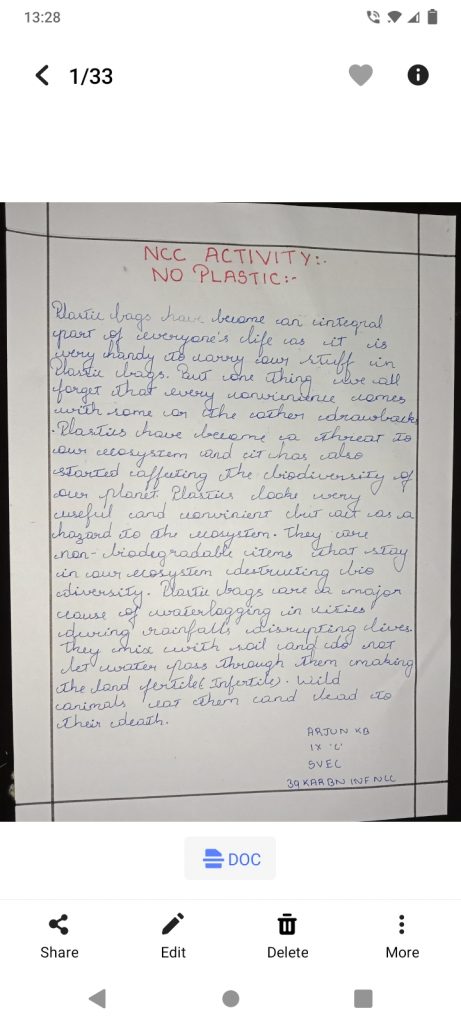 13:28
1/33
NCC ACTIVITY:-
NO PLASTIC:-
Plastic bags have become an integral
part of everyone's life as it is
very handy to carry our stuff in
Plastic bags. But one thing we all
forget that every convinience comes
with some or the other drawbacks
. Plastics have become a threat to
our ecosystem and it has also
started affecting the biodiversity of
our planet. Plastics looks very
useful and convinient but act as a
hazard to the ecosystem. They are
non-biodegradable items that stay
in our ecosystem destructing bio
diversity. Plastic bags are a major
cause of waterlogging in cities
during rainfalls disrupting lives.
They mix with soil and do not
let water pass through them making
the land fertile( Infertile). Wild
animals eat them and lead to
their death.
ARJUN KB
IX 'C'
SVEC
39 KAR BN INF NCC
DOC
Share Edit Delete More